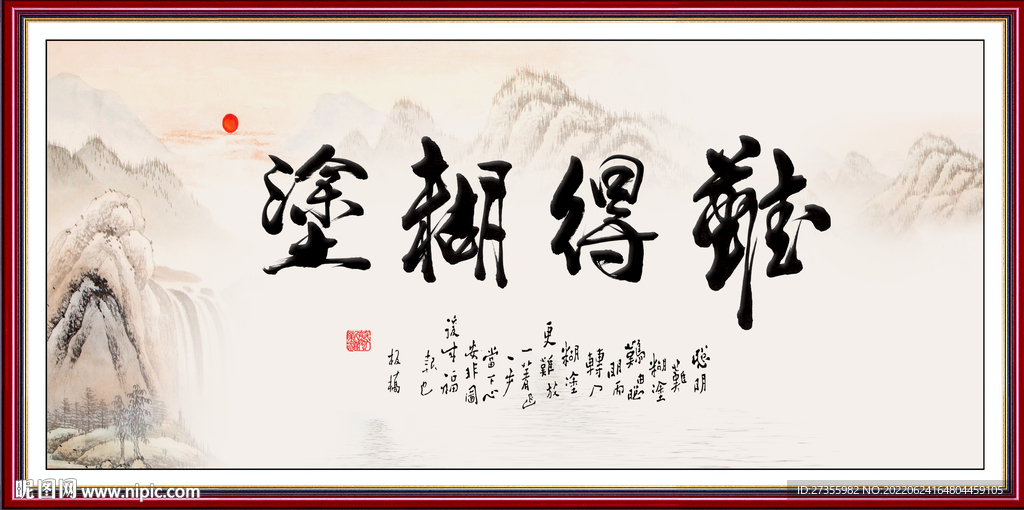 難得糊塗
聰明
難
糊塗
難由聰
明而
轉入
糊塗
更難放
一著退
一步
當下心
安非圖
後來福
報也
板橋
昵图网 www.nipic.com
ID:27355982 NO:20220624164804459105